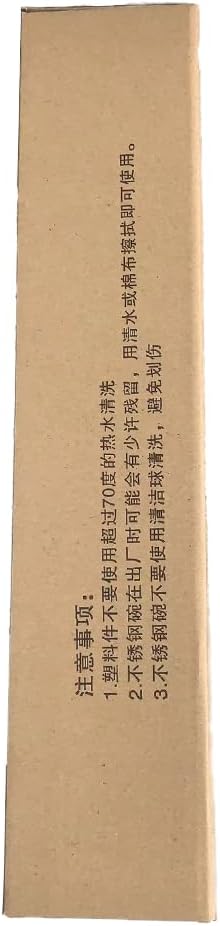 注意事项：
1.塑料件不要使用超过70度的热水清洗
2.不锈钢碗在出厂时可能会有少许残留，用清水或棉布擦拭即可使用。
3.不锈钢碗不要使用清洁球清洗，避免划伤